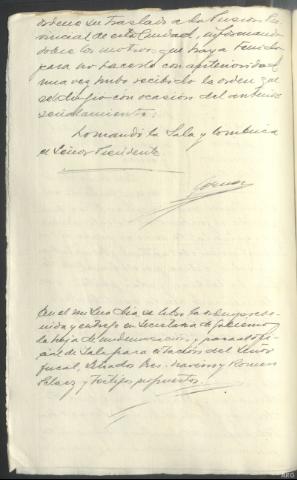 ordene su traslado a la Prision Pro-
vincial de esta Ciudad, informando
sobre los motivos que haya tenido
para no hacerlo con anterioridad
una vez hubo recibido la orden que
se le dirigió con ocasión del anterior
señalamiento.
Lo mandó la Sala y rubrica
el Señor Presidente
En el mismo dia se libra la orden
y entrego en Secretaria de Gobierno
la hoja de
de Sala para citación del Señor
Fiscal, Letrados Romero
y testigos propuestos.
ARG